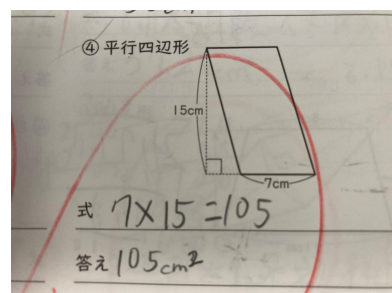 ④ 平行四辺形
15cm
7cm
式 7×15=105
答え 105cm²